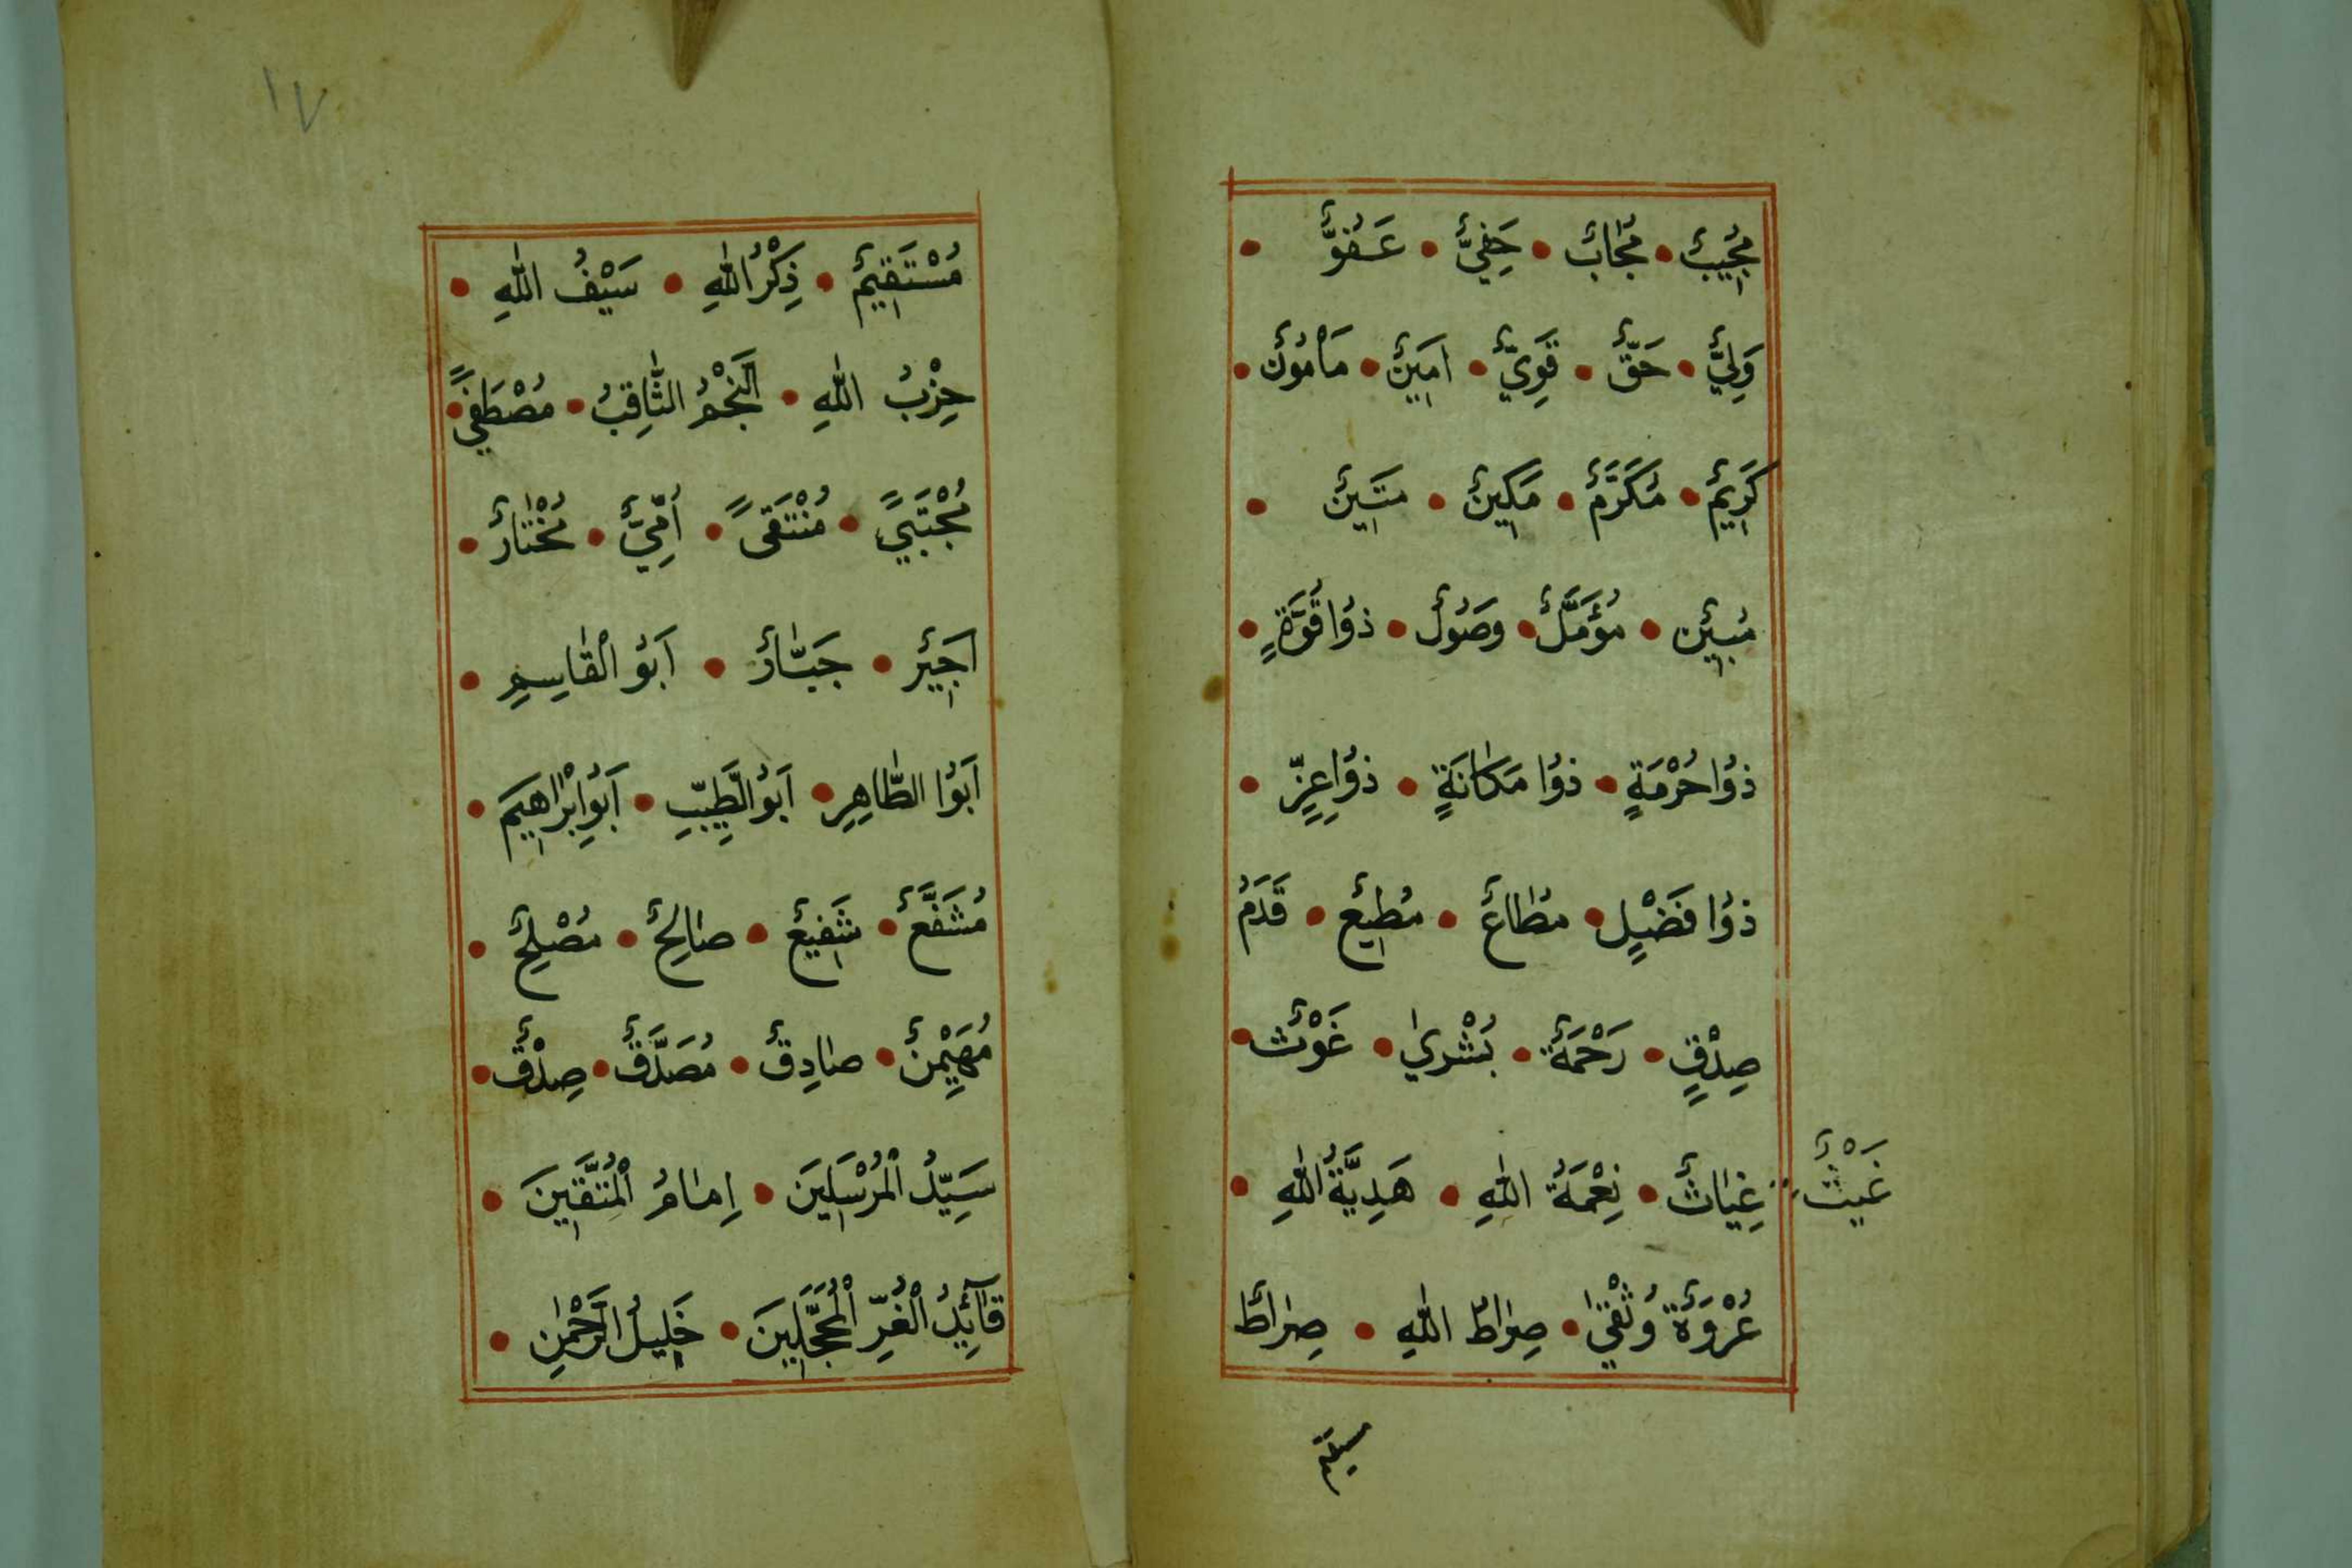 مُجِيبٌ • مُجَابٌ • حَفِيٌّ • عَفُوٌّ •
وَلِيٌّ • حَقٌّ • قَوِيٌّ • اَمِينٌ • مَأْمُونٌ •
كَرِيمٌ • مُكَرَّمٌ • مَكِينٌ • مَتِينٌ •
مُبِينٌ • مُؤَمَّلٌ • وَصُولٌ • ذُوا قُوَّةٍ •
ذُوا حُرْمَةٍ • ذُوا مَكَانَةٍ • ذُوا عِزٍّ •
ذُوا فَضْلٍ • مُطَاعٌ • مُطِيعٌ • قَدَمُ
صِدْقٍ • رَحْمَةٌ • بُشْرٰي • غَوْثٌ •
غَيْثٌ
غِيَاثٌ • نِعْمَةُ اللّٰهِ • هَدِيَّةُ اللّٰهِ •
عُرْوَةٌ وُثْقٰي • صِرَاطُ اللّٰهِ • صِرَاطٌ
١٧
مُسْتَقِيمٌ • ذِكْرُ اللّٰهِ • سَيْفُ اللّٰهِ •
حِزْبُ اللّٰهِ • اَلنَّجْمُ الثَّاقِبُ • مُصْطَفيً •
مُجْتَبيً • مُنْتَقىً • اُمِّيٌّ • مُخْتَارٌ •
اَجِيْرٌ • جَبَّارٌ • اَبُو الْقَاسِمِ •
اَبُوا الطَّاهِرِ • اَبُو الطَّيِّبِ • اَبُو اِبْرَاهِيمَ •
مُشَفَّعٌ • شَفِيعٌ • صَالِحٌ • مُصْلِحٌ •
مُهَيْمِنٌ • صَادِقٌ • مُصَدَّقٌ • صِدْقٌ •
سَيِّدُ الْمُرْسَلِينَ • اِمَامُ الْمُتَّقِينَ •
قَآئِدُ الْغُرِّ الْمُحَجَّلِينَ • خَلِيلُ الرَّحْمٰنِ •